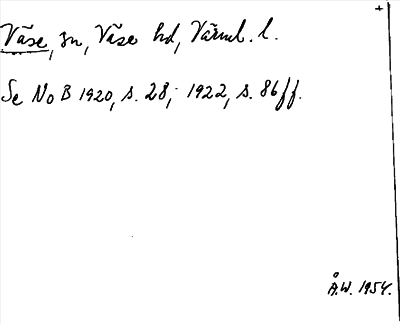 +
Väse, sn, Väse hd, Värml. l.
Se NoB 1920, s. 28; 1922, s. 86 ff.
Å.W. 1954.